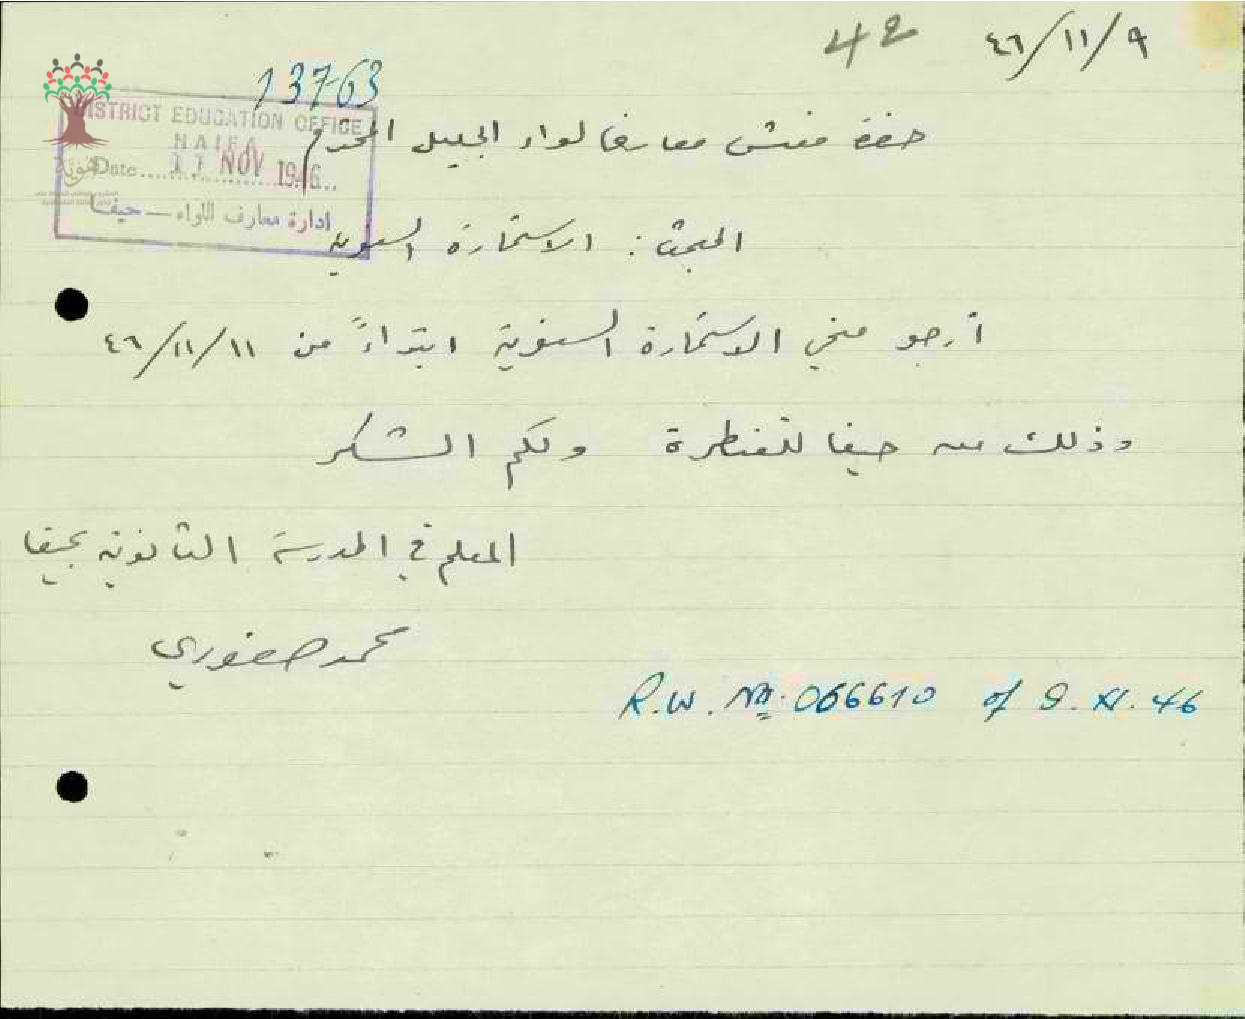 42 ٤٦/١١/٩
13763
DISTRICT EDUCATION OFFICE
HAIFA
Date 11 NOV 1946
ادارة معارف اللواء — حيفا
هوية
حضرة مفتش معارف لواء الجليل المحترم
المبحث : الاستمارة السنوية
أرجو منحي الاستمارة السنوية ابتداءً من ٤٦/١١/١١
وذلك من حيفا للقنطرة ولكم الشكر
المعلم في المدرسة الثانوية بحيفا
محمد صفوري
R.W. No. 066610 of 9.XI.46